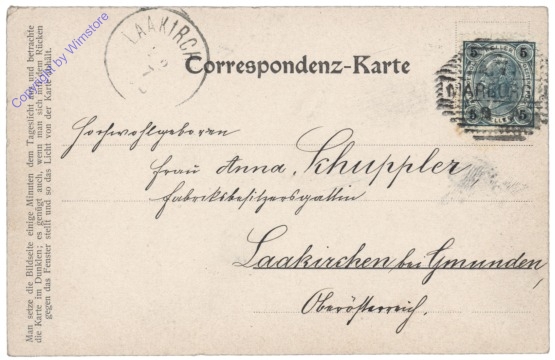 LAAKIRCH
Correspondenz-Karte
5 5
MARBURG
5 5
Hochwohlgeboren
Frau Anna Schuppler
Fabriksbesitzersgattin
Laakirchen bei Gmunden,
Oberösterreich.
Man setze die Bildseite einige Minuten dem Tageslicht aus und betrachte
die Karte im Dunklen; es genügt auch, wenn man sich mit dem Rücken
gegen das Fenster stellt und so das Licht von der Karte abhält.
Copyright by Wimstore